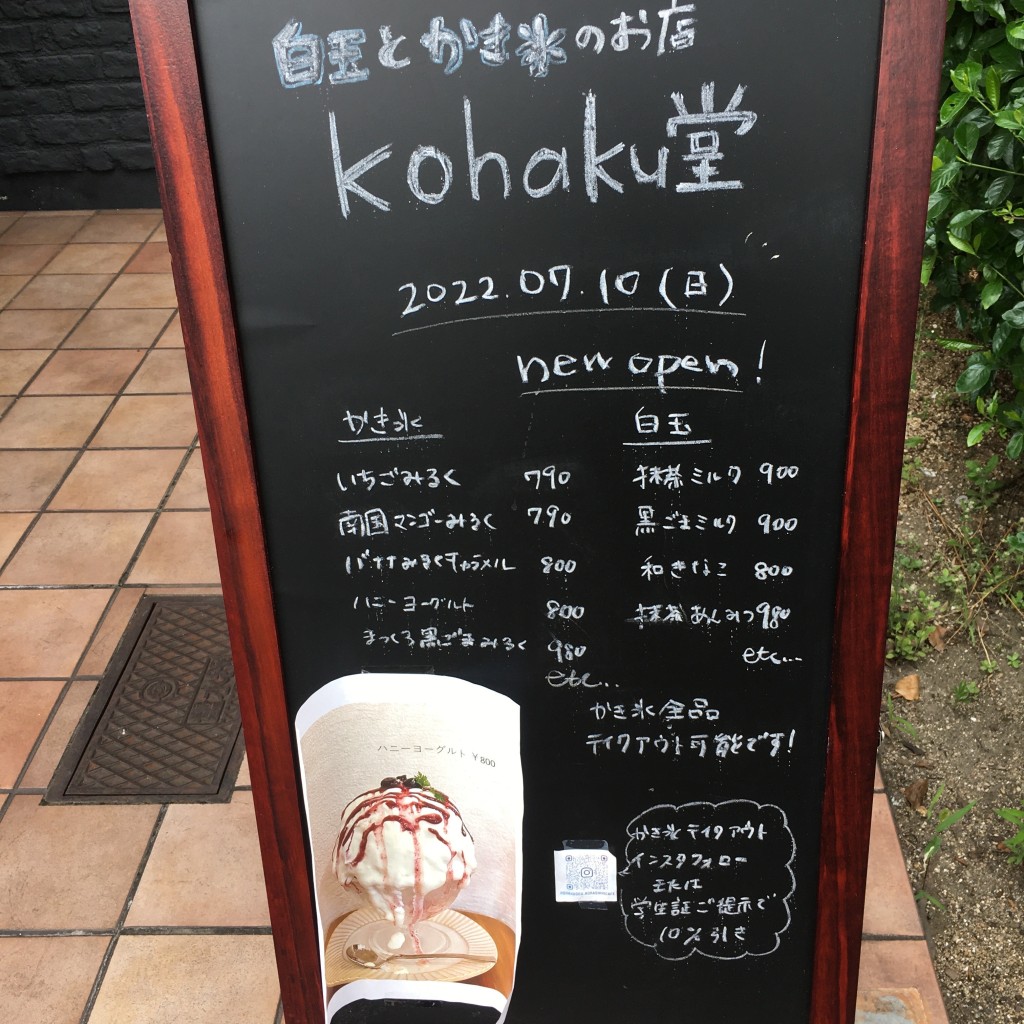 白玉とかき氷のお店
kohaku堂
2022.07.10(日)
new open!
かき氷
いちごみるく 790
南国マンゴーみるく 790
バナナみるくキャラメル 800
ハニーヨーグルト 800
まっくろ黒ごまみるく 980
etc...
白玉
抹茶ミルク 900
黒ごまミルク 900
和きなこ 800
抹茶あんみつ 980
etc...
かき氷全品
テイクアウト可能です!
ハニーヨーグルト ¥800
かき氷テイクアウト
インスタフォロー
または
学生証ご提示で
10%引き